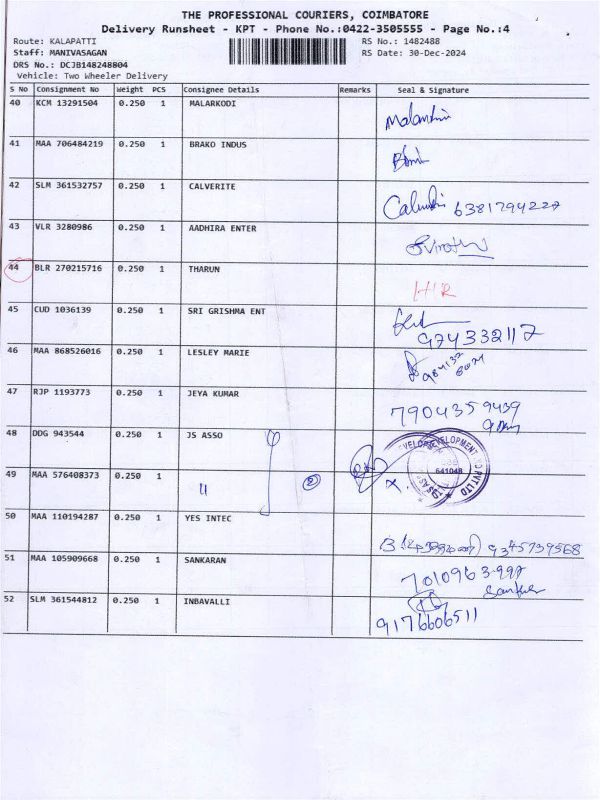 THE PROFESSIONAL COURIERS, COIMBATORE
Delivery Runsheet - KPT - Phone No.:0422-3505555 - Page No.:4
Route: KALAPATTI RS No.: 1482488
Staff: MANIVASAGAN RS Date: 30-Dec-2024
DRS No.: DCJB148248804
Vehicle: Two Wheeler Delivery
S No Consignment No Weight PCS Consignee Details Remarks Seal & Signature
40 KCM 13291504 0.250 1 MALARKODI
41 MAA 706484219 0.250 1 BRAKO INDUS
42 SLM 361532757 0.250 1 CALVERITE 6381794227
43 VLR 3280986 0.250 1 AADHIRA ENTER
44 BLR 270215716 0.250 1 THARUN
45 CUD 1036139 0.250 1 SRI GRISHMA ENT
974332117
46 MAA 868526016 0.250 1 LESLEY MARIE
47 RJP 1193773 0.250 1 JEYA KUMAR
7904359439
48 DDG 943544 0.250 1 JS ASSO
641048
49 MAA 576408373 0.250 1 " 2
50 MAA 110194287 0.250 1 YES INTEC
9345739568
51 MAA 105909668 0.250 1 SANKARAN
7010963997
52 SLM 361544812 0.250 1 INBAVALLI
9176606511